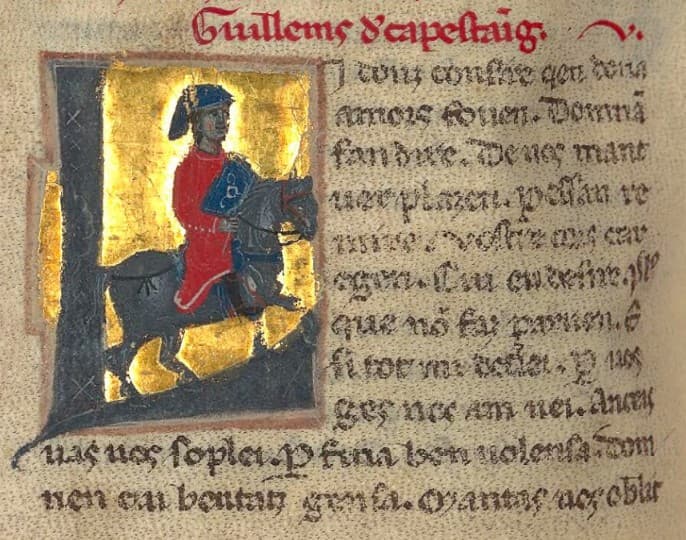 Guillems de capestaig. V.
L J douz consire qen dona
amors souen. Domna
fan dire. De uos maint
uer plazen. Pessan re
mire. Vostre cors car
e gen. Cui eu desire. 
que nō faz paruen. E
si tot me deslei. P uos
ges nos am nei. Anceis
uas uos soplei. P fina ben uolensa. Dom
nen cui beutatz gensa. Maintas uos oblit